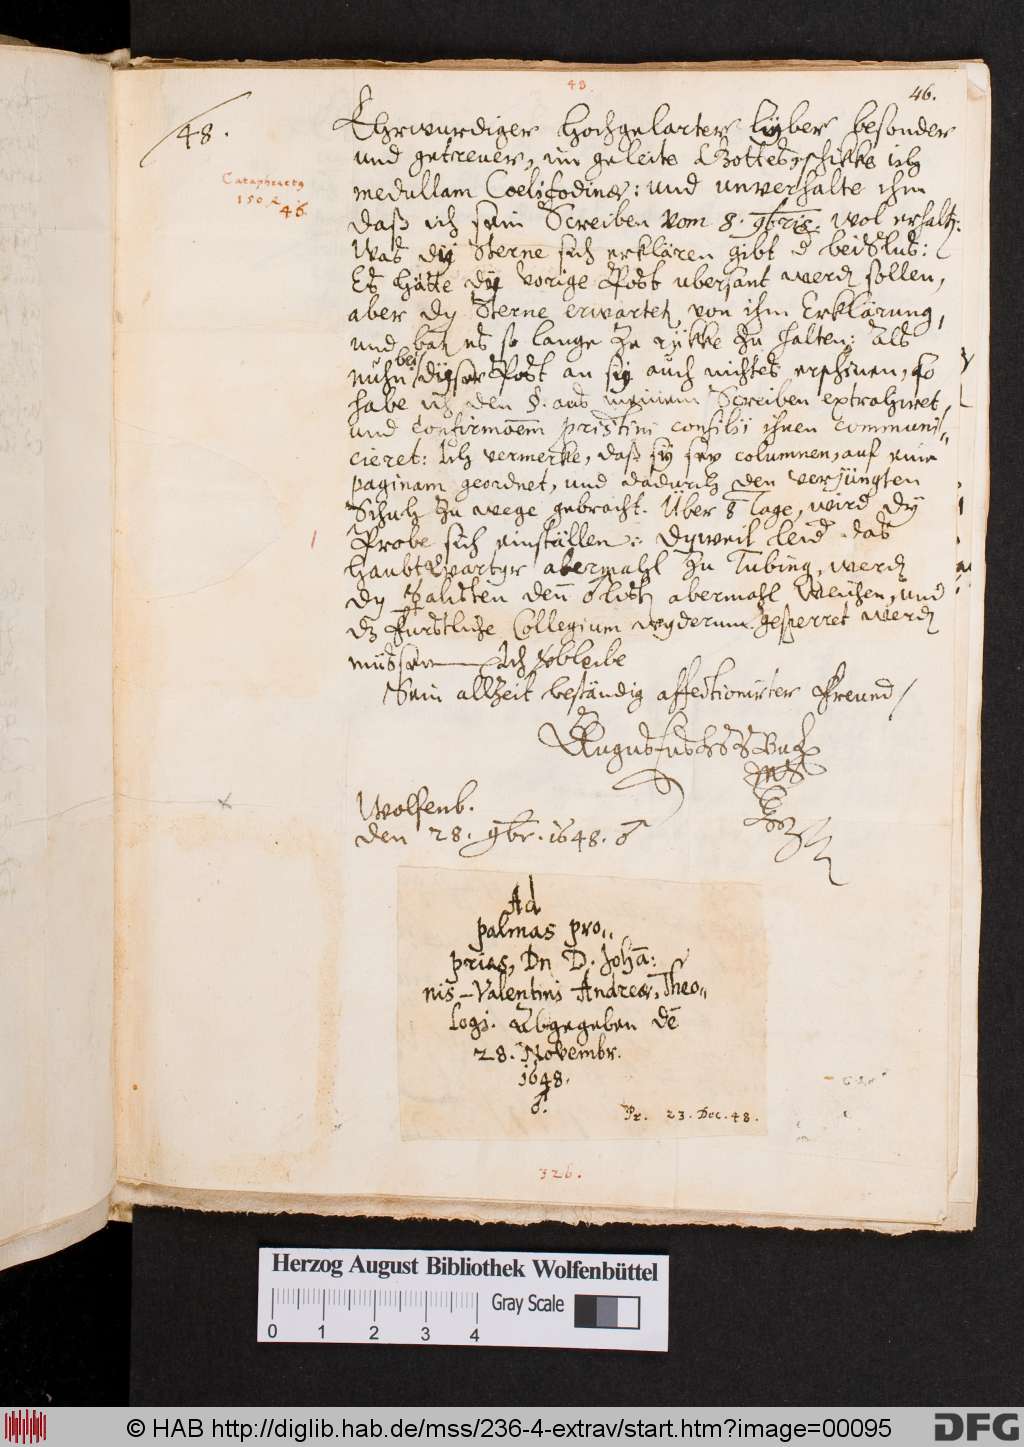 43.
46.
48.
Cataphractq
150 R
46.
Ehrwurdiger Hochgelarter lÿber besonder
und getrewer, im geleite Gottes, schikke ich
medullam Coelifodinæ: und unverhalte ihm
daß ich sein Screiben vom 8. 9bris. wol erhaltn:
Was dÿ Sterne sich erklären gibt d beiSlus:
Es hätte dÿ vorige Post ubersant werdn sollen,
aber dy Sterne erwartet, von ihm Erklärung,
und es so lange zu rükke zu halten: Als
nuhn bei dÿser Post an sÿ auch nichtes erschinen, so
habe ich den §. aus meinem Screiben extrahiret,
und confirmaõem pristini consilii ihnen communi„
cieret: Ich vermerke, daß sÿ sex columnen, auf eine
paginam geordnet, und dadurch den verjüngten
Schuh zu wege gebracht. Über 8 Tage, wird dy
Probe sich einställen: dyweil leid das
HaubtQvartyr abermahl zu Tubing, werdn
dy Palisten den abermahl weichen, und
dz Furstliche Collegium wyderumb gesperret werdn
müssen Ich verbleibe
Sein allzeit beständig affectionirter Freund/
Augustus HzBuL
Wolfenb.
den 28. 9br. 1648. ♂
Ad
palmas pro„
prias, Dn D. Johã:
nis-Valentini Andreæ, Theo„
logi. Abgegeben dẽ
28. Novembr.
1648.
♂.
Pr. 23. Dec. 48.
326.
Herzog August Bibliothek Wolfenbüttel
Gray Scale
0 1 2 3 4
© HAB http://diglib.hab.de/mss/236-4-extrav/start.htm?image=00095
DFG